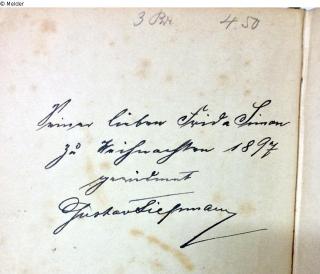 © Melder
3 Bde 4.50
Seiner lieben Frida Simon
zu Weihnachten 1897
gewidmet
Gustav